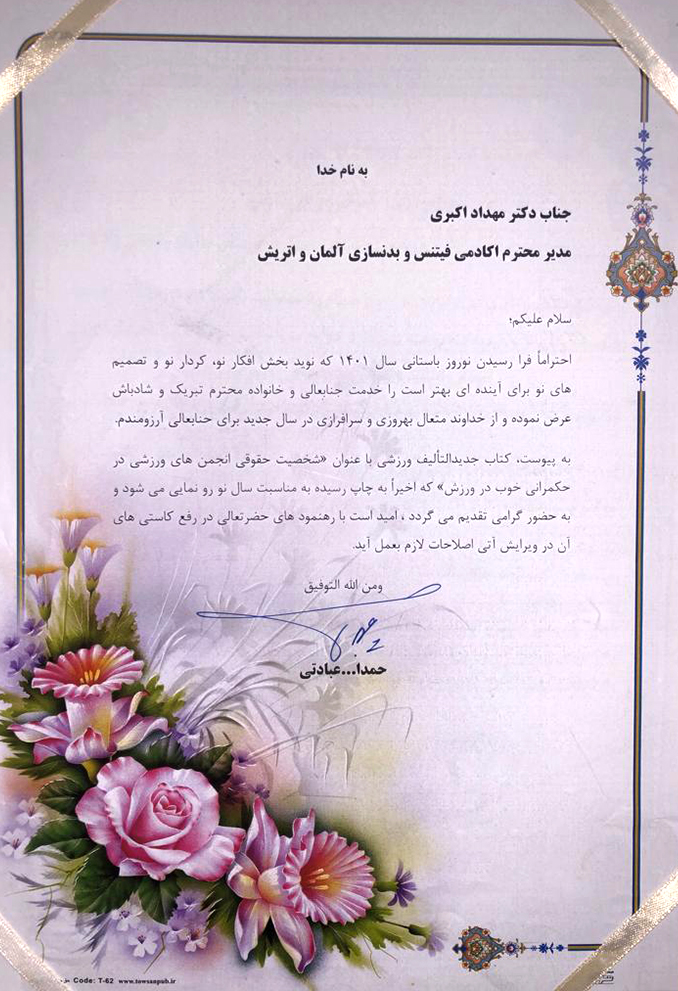 به نام خدا
جناب دکتر مهداد اکبری
مدیر محترم اکادمی فیتنس و بدنسازی آلمان و اتریش
سلام علیکم؛
احتراماً فرا رسیدن نوروز باستانی سال ۱۴۰۱ که نوید بخش افکار نو، کردار نو و تصمیم
های نو برای آینده ای بهتر است را خدمت جنابعالی و خانواده محترم تبریک و شادباش
عرض نموده و از خداوند متعال بهروزی و سرافرازی در سال جدید برای جنابعالی آرزومندم.
به پیوست، کتاب جدیدالتألیف ورزشی با عنوان «شخصیت حقوقی انجمن های ورزشی در
حکمرانی خوب در ورزش» که اخیراً به چاپ رسیده به مناسبت سال نو رو نمایی می شود و
به حضور گرامی تقدیم می گردد ، امید است با رهنمود های حضرتعالی در رفع کاستی های
آن در ویرایش آتی اصلاحات لازم بعمل آید.
ومن الله التوفیق
حمدا...عبادتی
Code: T-62 www.towsanpub.ir